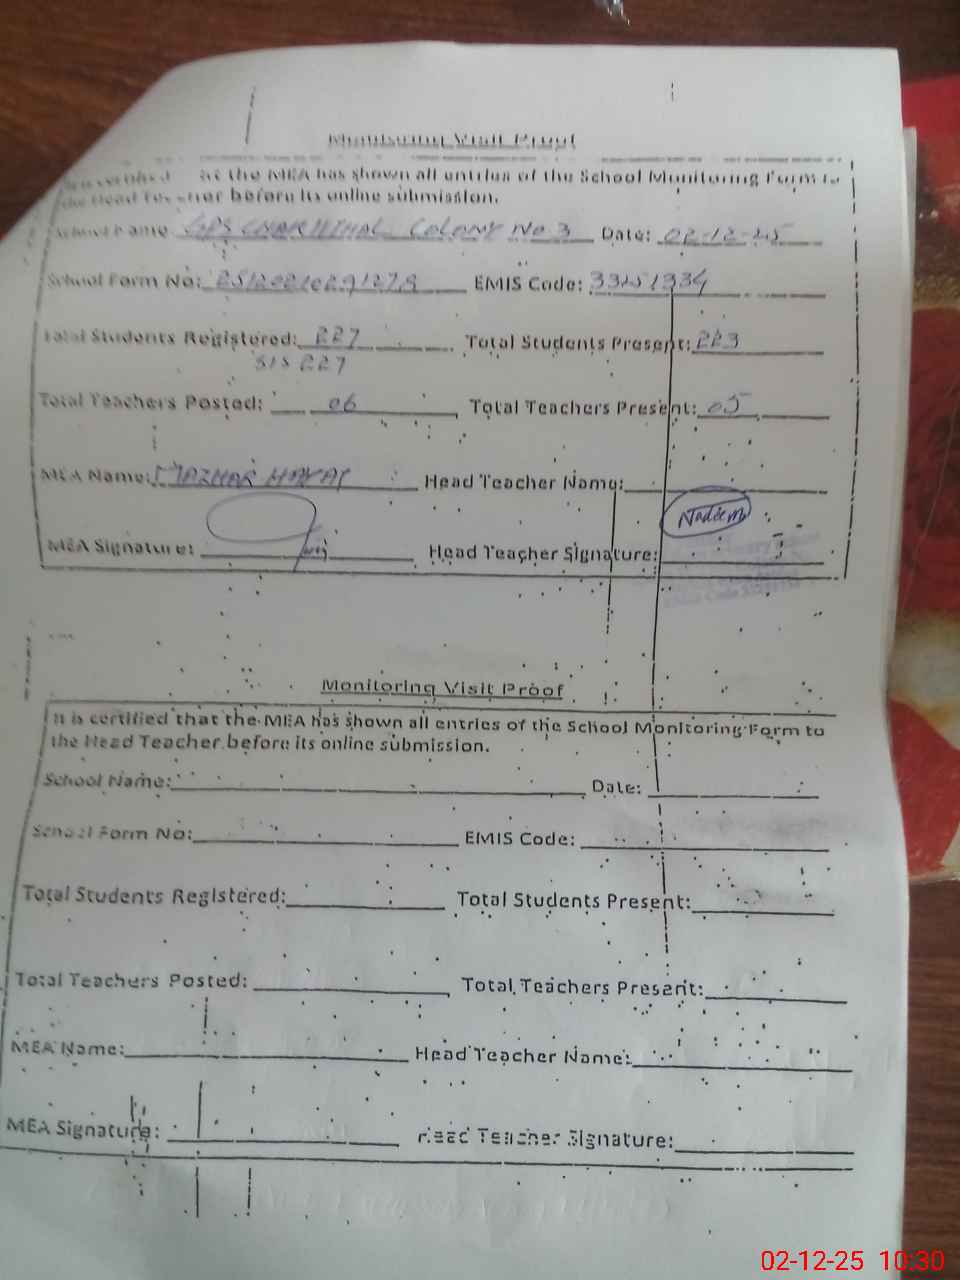 Monitoring Visit Proof
the MEA has shown all entries of the School Monitoring Form to
the Head Teacher before its online submission.
School Name GPS Colony No 3 Date: 02-12-25
School Form No: EMIS Code:
Total Students Registered: 227 Total Students Present: 223
SIS 227
Total Teachers Posted: 06 Total Teachers Present: 05
MEA Name: MAZHAR HAYAT Head Teacher Name:
Nadeem
MEA Signature: Head Teacher Signature:
Monitoring Visit Proof
It is certified that the MEA has shown all entries of the School Monitoring Form to
the Head Teacher before its online submission.
School Name: Date:
School Form No: EMIS Code:
Total Students Registered: Total Students Present:
Total Teachers Posted: Total Teachers Present:
MEA Name: Head Teacher Name:
MEA Signature: Head Teacher Signature:
02-12-25 10:30